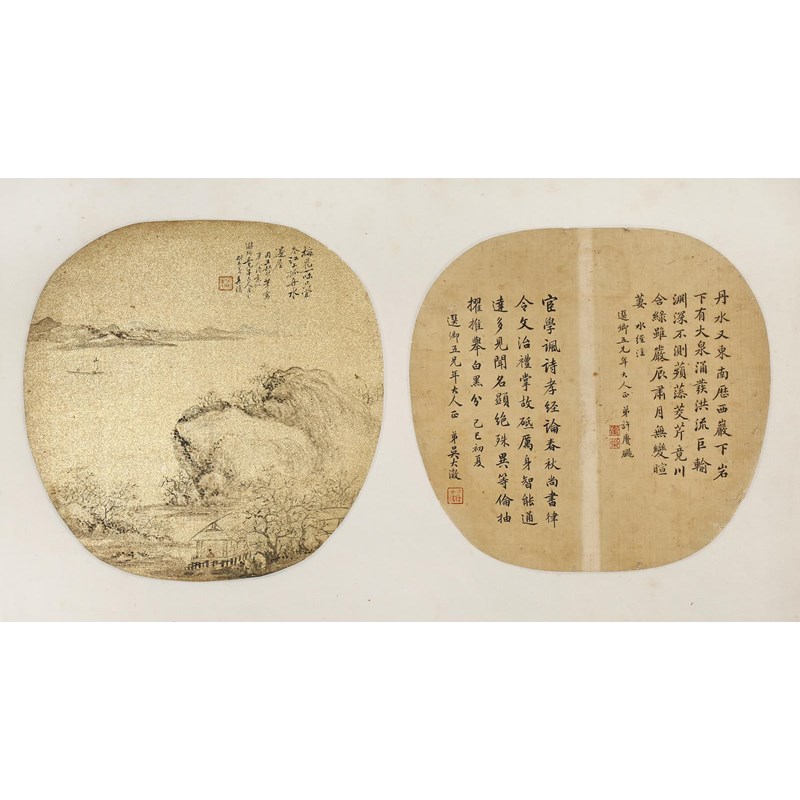 丹水又東南厯西巖下岩
下有大泉涌發洪流巨輸
淵深不測蘋藻茭芹竟川
含綠雖嚴辰肅月無變暄
萋 水經注
選卿五兄年大人正 弟許賡颺
宦學諷詩孝經論春秋尚書律
令文治禮掌故砥厲身智能通
達多見聞名顯絶殊異等倫抽
擢推舉白黑分 己巳初夏
選卿五兄年大人正 弟吳大澂
梅花一味